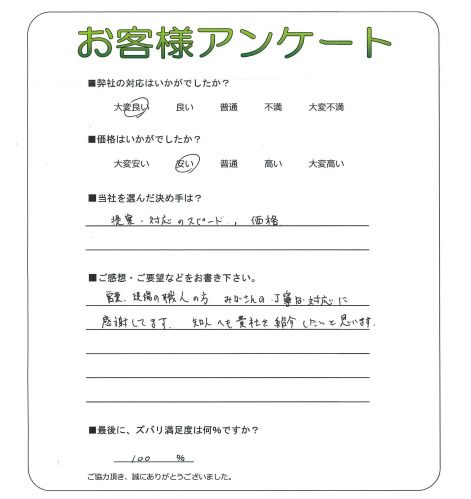 お客様アンケート
■弊社の対応はいかがでしたか？
大変良い 良い 普通 不満 大変不満
■価格はいかがでしたか？
大変安い 安い 普通 高い 大変高い
■当社を選んだ決め手は？
提案・対応のスピード, 価格
■ご感想・ご要望などをお書き下さい。
営業、現場の職人の方 みなさんの丁寧な対応に
感謝してます. 知人へも貴社を紹介したいと思います.
■最後に、ズバリ満足度は何%ですか？
100 %
ご協力頂き、誠にありがとうございました。